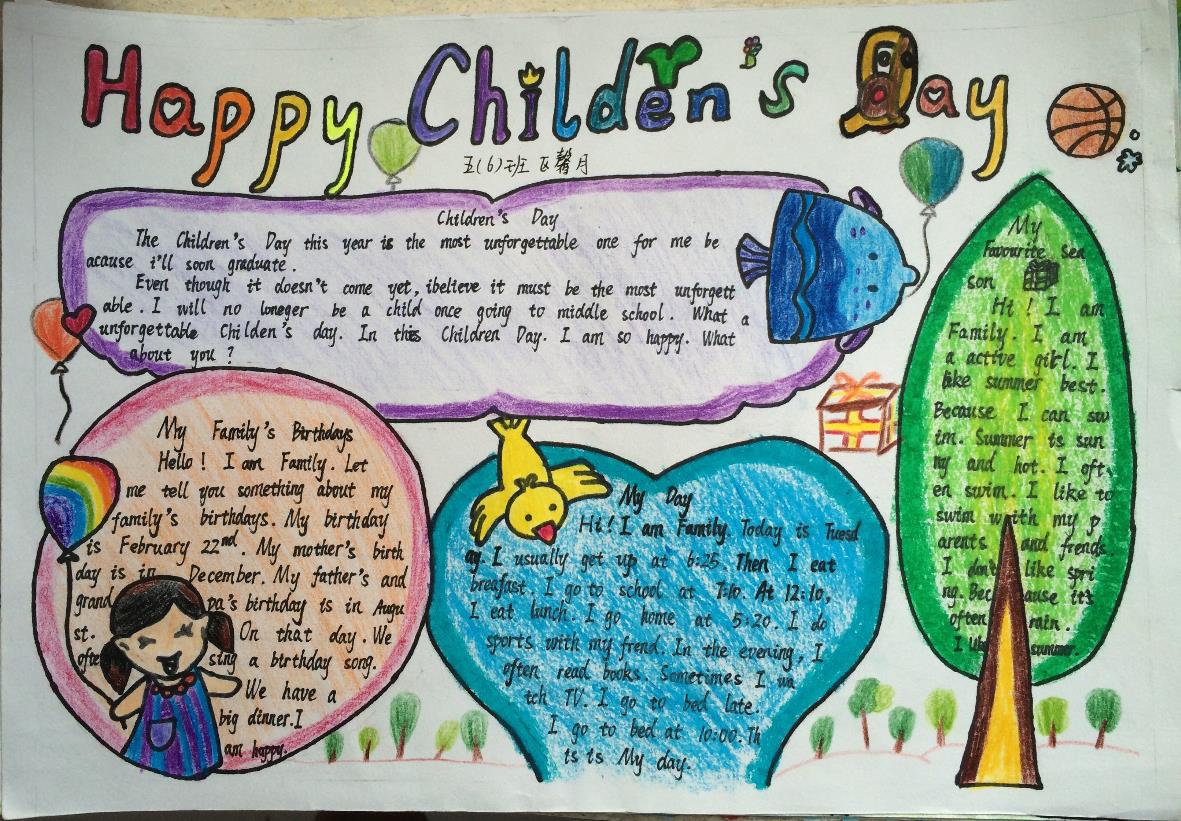 Happy Children's Day
五(6)班 区馨月
Children's Day
The Children's Day this year is the most unforgettable one for me be
acause i'll soon graduate.
Even though it doesn't come yet, ibelieve it must be the most unforgett
able. I will no loneger be a child once going to middle school. What a
unforgettable Childen's day. In this Children Day. I am so happy. What
about you ?
My Family's Birthdays
Hello ! I am Family. Let
me tell you something about my
family's birthdays. My birthday
is February 22nd. My mother's birth
day is in December. My father's and
grand pa's birthday is in Augu
st. On that day. We
ofte sing a birthday song.
We have a
big dinner. I
am happy.
My Day
Hi! I am Family. Today is Tuesd
ay. I usually get up at 6:25. Then I eat
breafast. I go to school at 7:10. At 12:10,
I eat lunch. I go home at 5:20. I do
sports with my frend. In the evening, I
often read books. Sometimes I wa
tch TV. I go to bed late.
I go to bed at 10:00. Th
is is My day.
My
Favourite sea
son
Hi ! I am
Family. I am
a active girl. I
like summer best.
Because I can sw
im. Summer is sun
ny and hot. I oft
en swim. I like to
swim with my p
arents and frends.
I don't like spri
ng. Because it's
often rain.
I like summer.